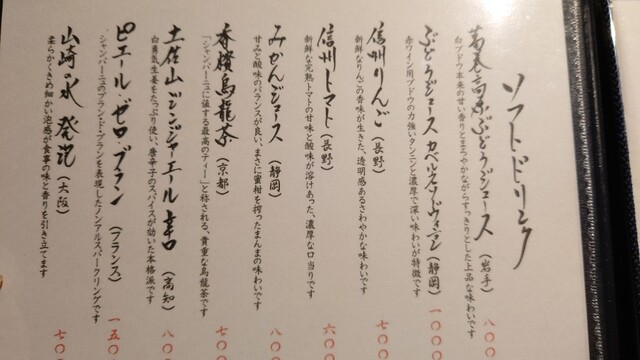 ソフトドリンク
葛巻高原ぶどうジュース（岩手）八〇〇
白ブドウ本来の甘い香りとまろやかながらすっきりとした上品な味わいです
ぶどうジュース カベルネソーヴィニヨン（静岡）一〇〇〇
赤ワイン用ブドウの力強いタンニンと濃厚で深い味わいが特徴です
信州りんご（長野）七〇〇
新鮮なりんごの香味が生きた、透明感あるさわやかな味わいです
信州トマト（長野）六〇〇
新鮮な完熟トマトの甘味と酸味が溶けあった、濃厚な口当りです
みかんジュース（静岡）八〇〇
甘みと酸味のバランスが良い、まさに蜜柑を搾ったまんまの味わいです
香檳烏龍茶（京都）七〇〇
「シャンパーニュに値する最高のティー」と称される、貴重な烏龍茶です
土佐山ジンジャーエール 辛口（高知）八〇
白勇気生姜をたっぷり使い、唐辛子のスパイスが効いた本格派です
ピエール・ゼロ・ブラン（フランス）一五〇
シャンパーニュのブラン・ド・ブランを表現したノンアルスパークリングです
山崎の水 発泡（大阪）七〇
柔らかくきめ細かい泡感が食事の味と香りを引き立てます